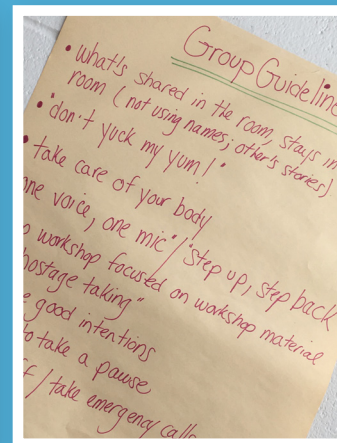 Group Guideline
• what's shared in the room, stays in
room (not using names; other's stories)
• "don't yuck my yum!"
• take care of your body
ne voice, one mic" / "step up, step back
workshop focused on workshop material
hostage taking"
good intentions
to take a pause
/ take emergency calls